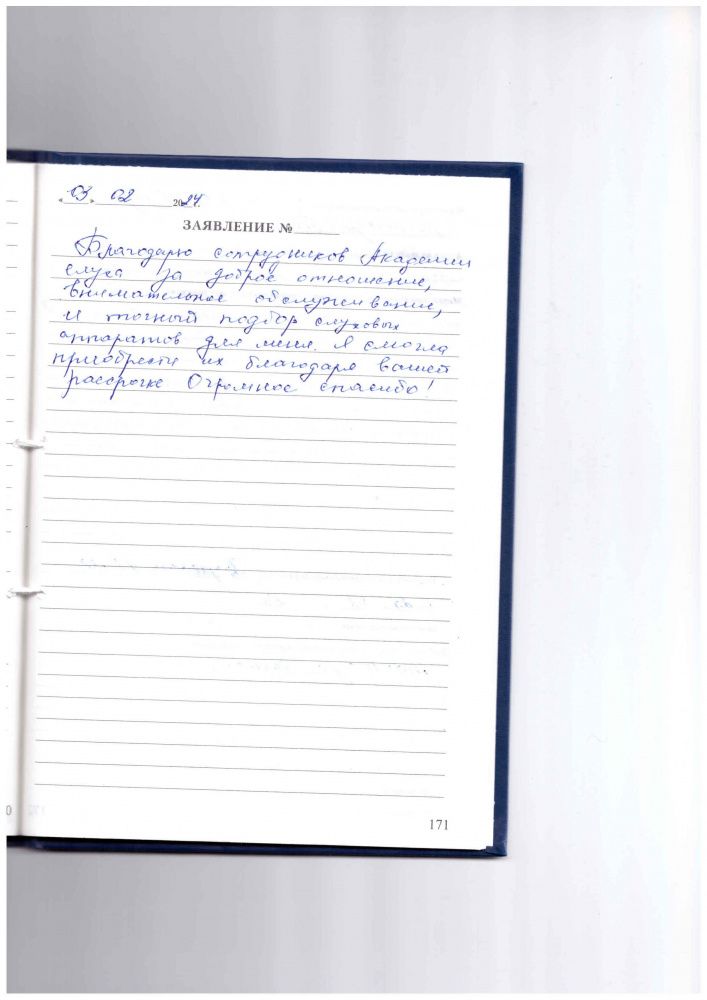 « 03 » 02 2024.
ЗАЯВЛЕНИЕ №
Благодарю сотрудников Академии
слуха за доброе отношение,
внимательное обслуживание,
и точный подбор слуховых
аппаратов для меня. Я смогла
приобрести их благодаря вашей
рассрочке Огромное спасибо!
171